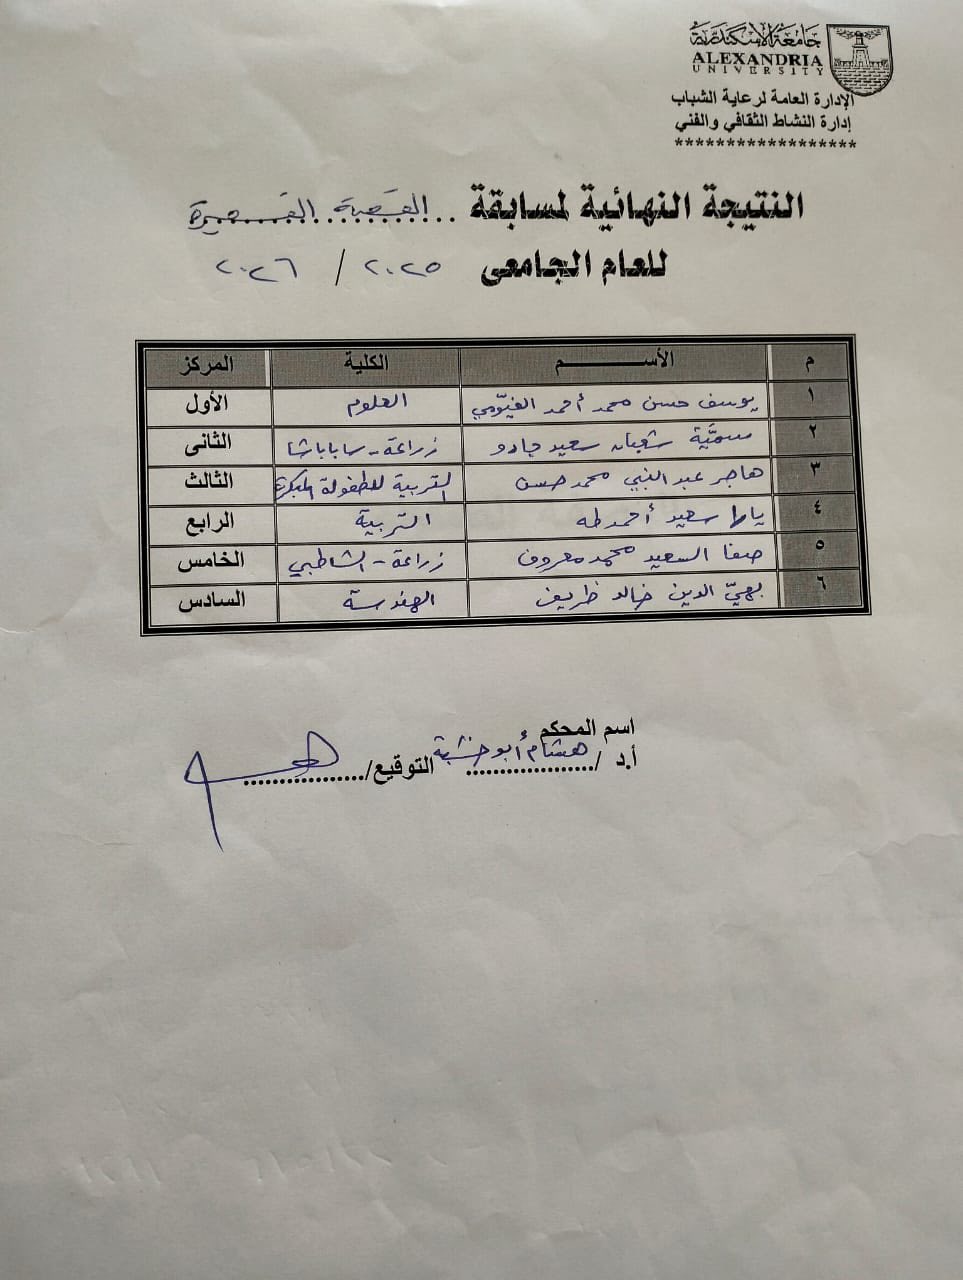 جامعة الإسكندرية
ALEXANDRIA
UNIVERSITY
الإدارة العامة لرعاية الشباب
إدارة النشاط الثقافي والفني
******************
النتيجة النهائية لمسابقة القصة القصيرة
للعام الجامعى ٢٠٢٥ / ٢٠٢٦
م الأســـــم الكلية المركز
١ يوسف حسن محمد أحمد الفيّومي العلوم الأول
٢ سميَّة شعبان سعيد جادو زراعة - سابا باشا الثانى
٣ هاجر عبد النبي محمد حسن التربية للطفولة المبكرة الثالث
٤ يارا سعيد أحمد طه التربية الرابع
٥ صفا السعيد محمد معروف زراعة - الشاطبي الخامس
٦ بهيّ الدين خالد ظريف الهندسة السادس
اسم المحكم
أ.د / هشام أبو خشبة التوقيع/